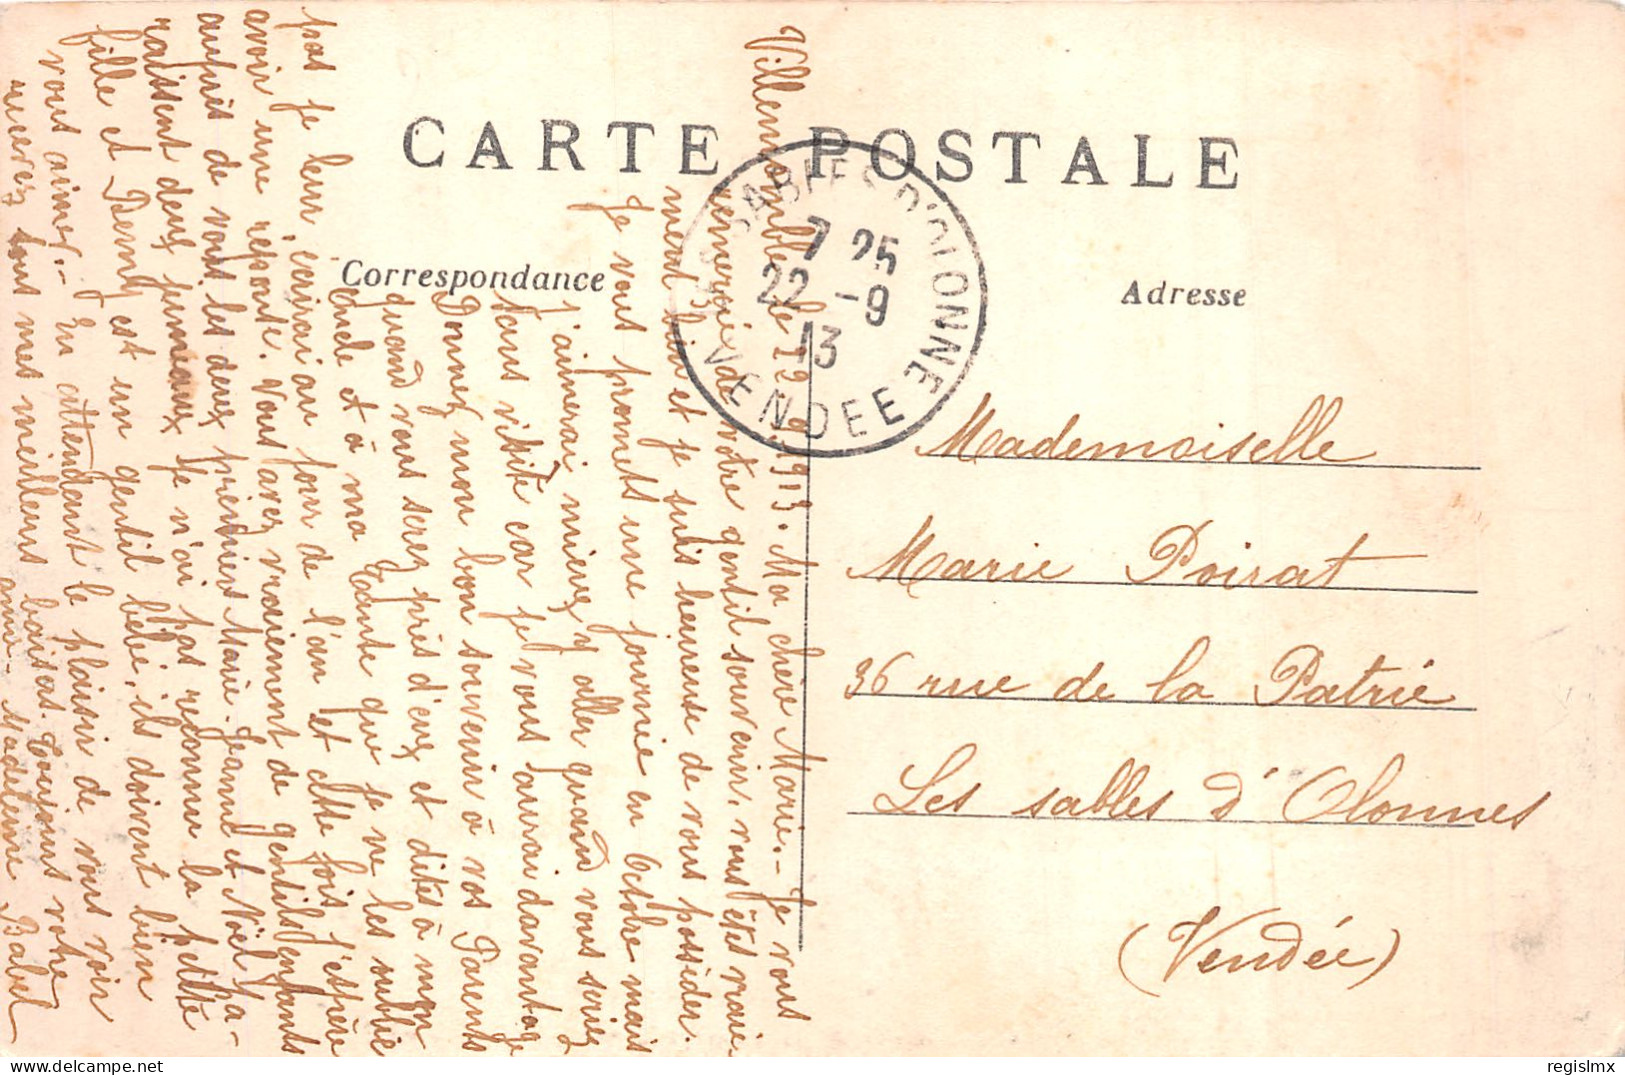 CARTE POSTALE
Correspondance
Adresse
LES SABLES D'OLONNE
7 25
22 -9
13
VENDEE
Villemomble le 12 9 1913. Ma chère Marie. - Je vous
remercie de votre gentil souvenir, vous êtes vraie-
ment bien et je suis heureuse de vous possèder.
Je vous promets une journée en Octobre mais
j'aimerai mieux y aller quand vous seriez
tous visité car je vous aurai davantage
Donnez mon bon souvenir à vos Parents
quand vous serez près d'eux et dites à mon
Oncle et à ma Tante que je ne les oublie
pas je leur écrirai au jour de l'an et cette fois j'espère
avoir une réponse. Vous avez vraiement de gentils enfants
auprès de vous les deux premiers Marie Jeanne et Noël pa-
raissent deux jumeaux je n'ai pas reconnu la petite
fille et est un gentil bébé, ils doivent bien
vous aimer. - En attendant le plaisir de vous voir
recevez tous mes meilleurs baisers. Toujours votre
amie - Madeleine Babel
Mademoiselle
Marie Poirat
36 rue de la Patrie
Les sables d'Olonnes
(Vendée)
regislmx